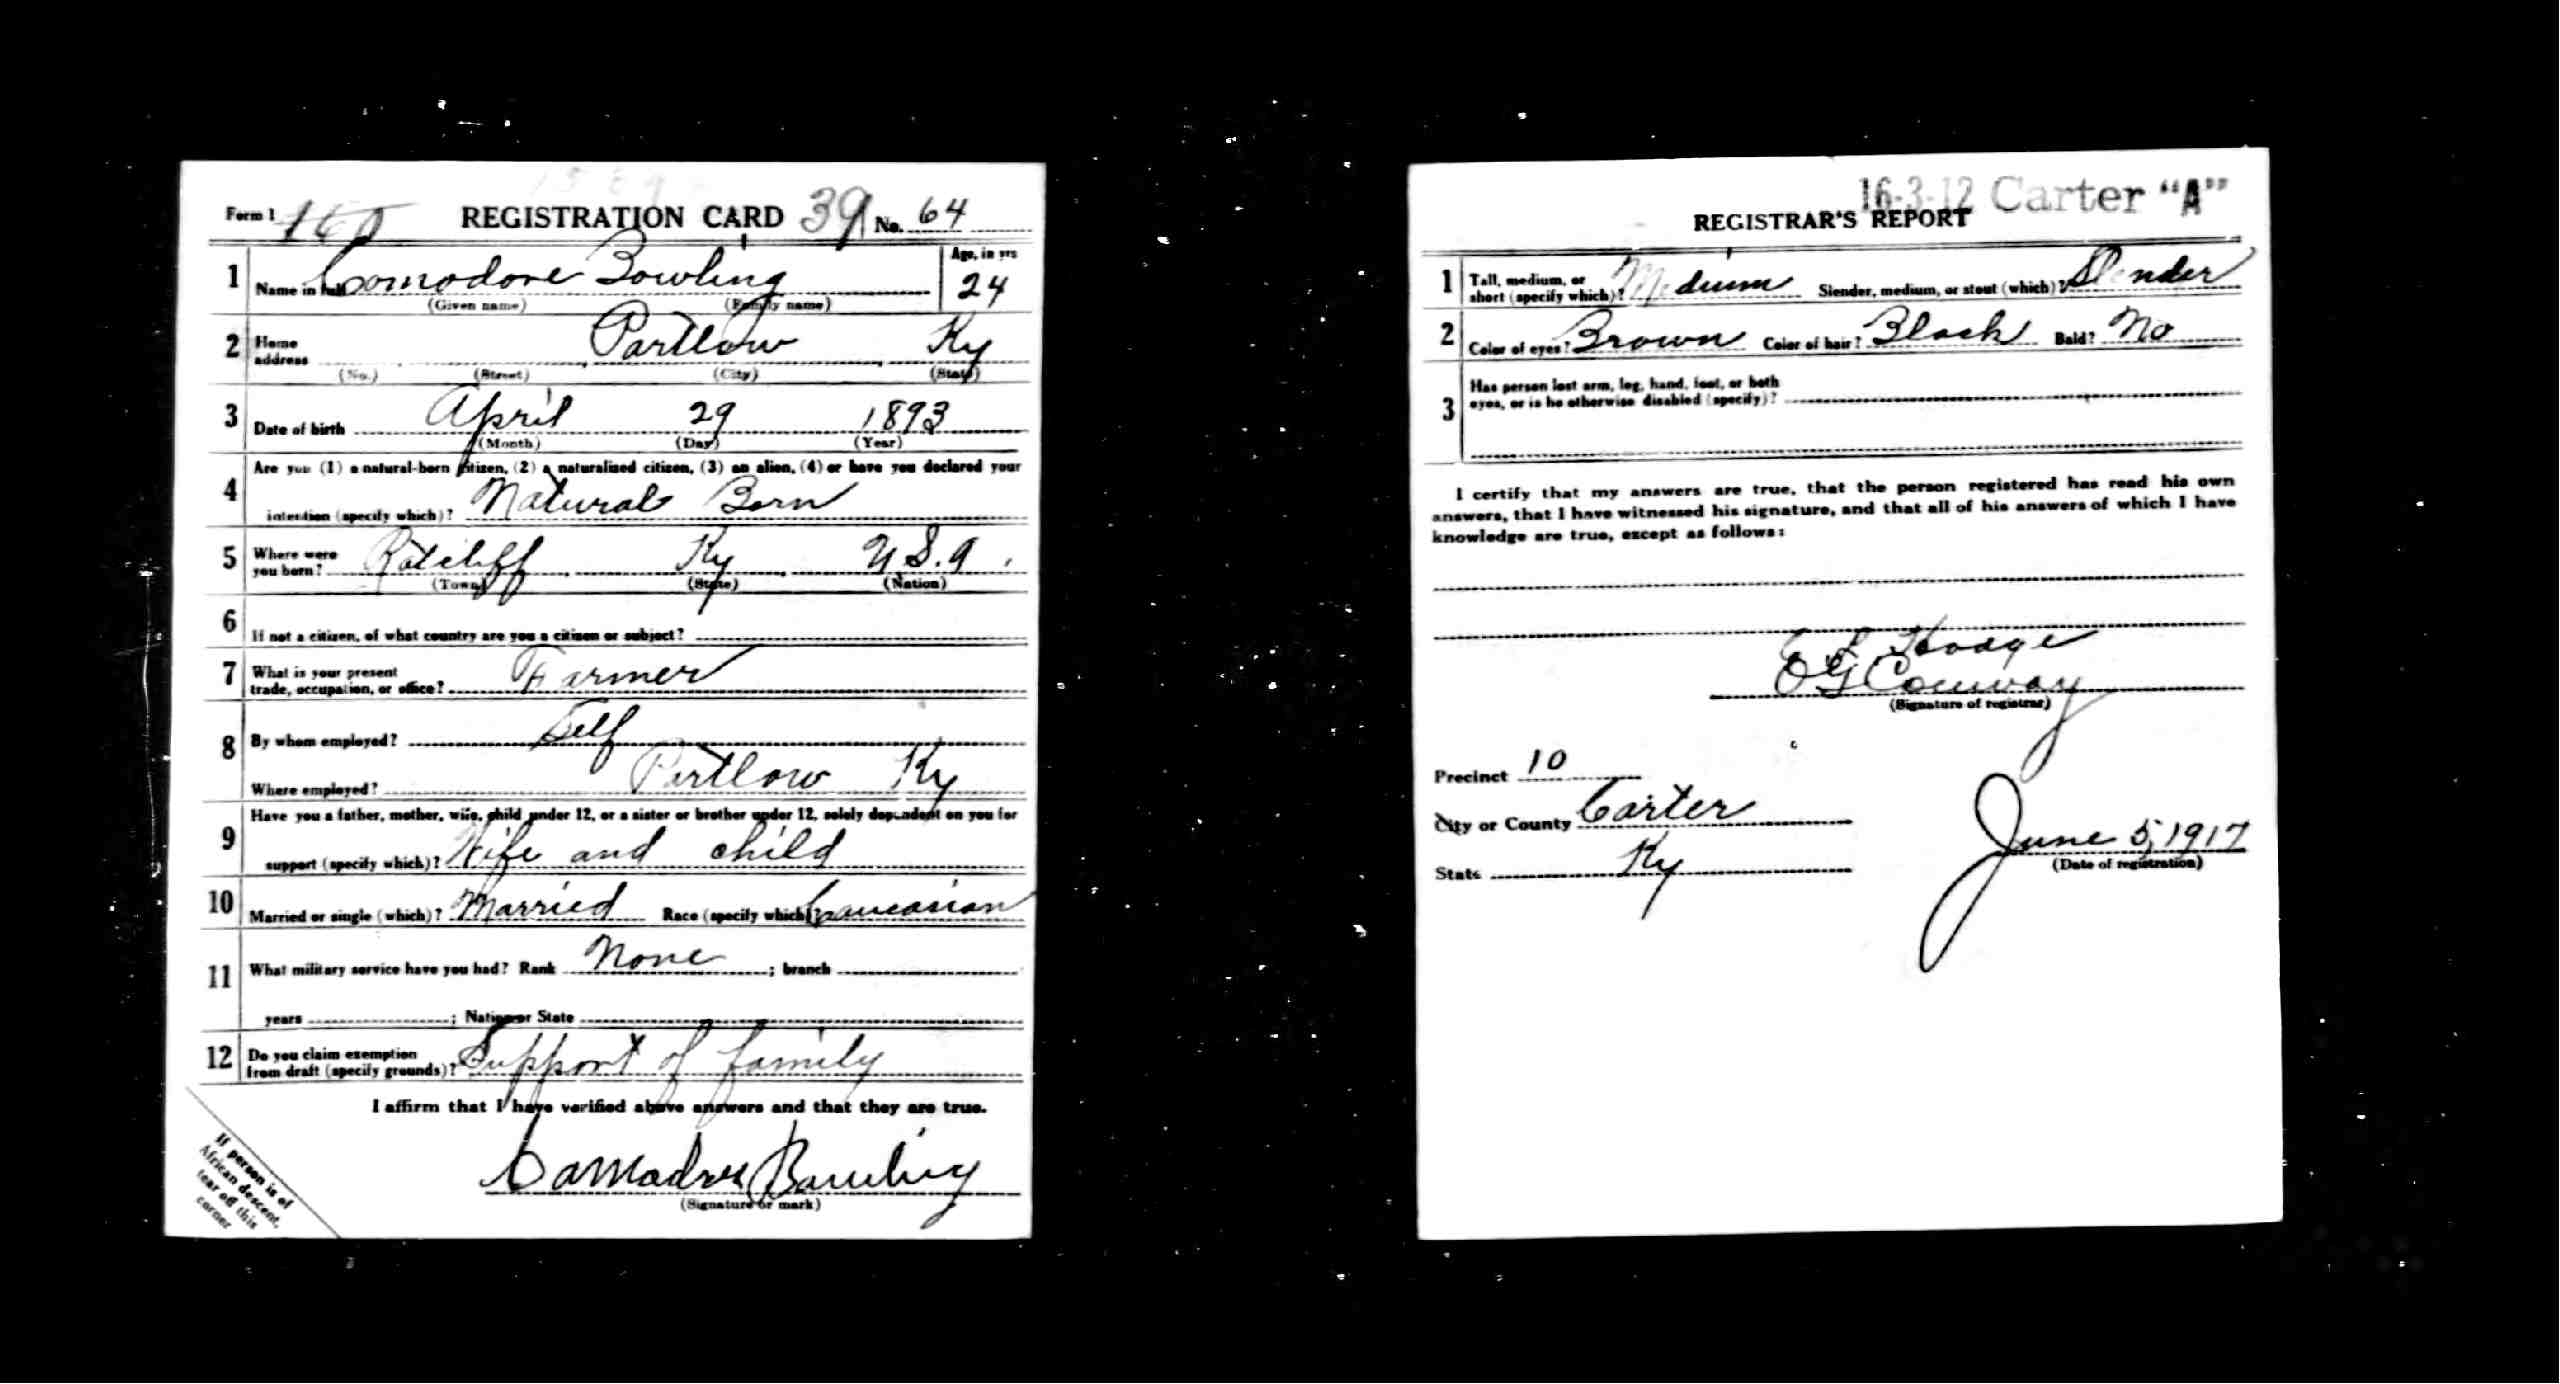 Form 1 REGISTRATION CARD 39 No. 64
1 Name in full Comodore Bowling Age, in yrs
(Given name) (Family name) 24
2 Home address Partlow Ky
(No.) (Street) (City) (State)
3 Date of birth April 29 1893
(Month) (Day) (Year)
4 Are you (1) a natural-born citizen, (2) a naturalized citizen, (3) an alien, (4) or have you declared your
intention (specify which)? Natural Born
5 Where were you born? Ratcliff Ky U.S.A.
(Town) (State) (Nation)
6 If not a citizen, of what country are you a citizen or subject?
7 What is your present
trade, occupation, or office? Farmer
8 By whom employed? Self
Where employed? Partlow Ky
9 Have you a father, mother, wife, child under 12, or a sister or brother under 12, solely dependent on you for
support (specify which)? Wife and child
10 Married or single (which)? Married Race (specify which)? Caucasian
11 What military service have you had? Rank None ; branch
years ; Nation or State
12 Do you claim exemption
from draft (specify grounds)? Support of family
I affirm that I have verified above answers and that they are true.
Bowling
(Signature or mark)
If person is of
African descent,
tear off this
corner
16-3-12 Carter "A"
REGISTRAR'S REPORT
1 Tall, medium, or
short (specify which)? Medium Slender, medium, or stout (which)? Slender
2 Color of eyes? Brown Color of hair? Black Bald? No
3 Has person lost arm, leg, hand, foot, or both
eyes, or is he otherwise disabled (specify)?
I certify that my answers are true, that the person registered has read his own
answers, that I have witnessed his signature, and that all of his answers of which I have
knowledge are true, except as follows:
Hodge
E G Conway
(Signature of registrar)
Precinct 10
City or County Carter
State Ky
June 5, 1917
(Date of registration)